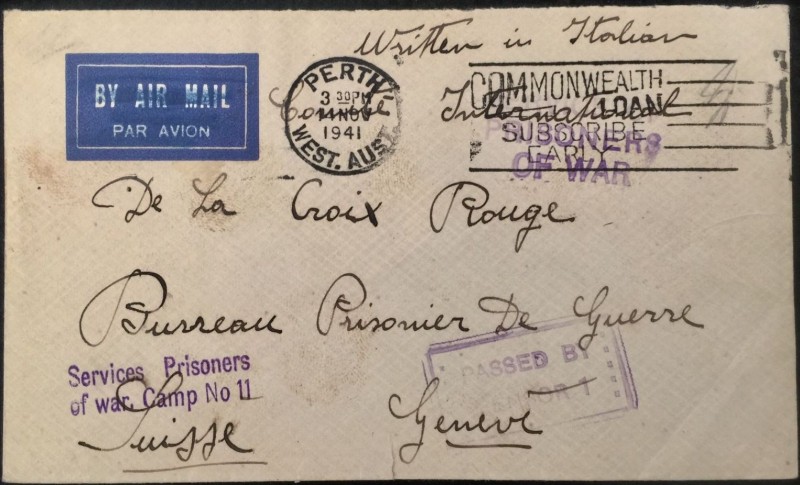 Written in Italian
BY AIR MAIL
PAR AVION
PERTH
3 30PM
14 NOV
1941
WEST. AUST
COMMONWEALTH
LOAN
SUBSCRIBE
EARLY
International
PRISONERS
OF WAR
De La Croix Rouge
Burreau Prisonier De Guerre
Services Prisoners
of war. Camp No 11
PASSED BY
Suisse Genevé